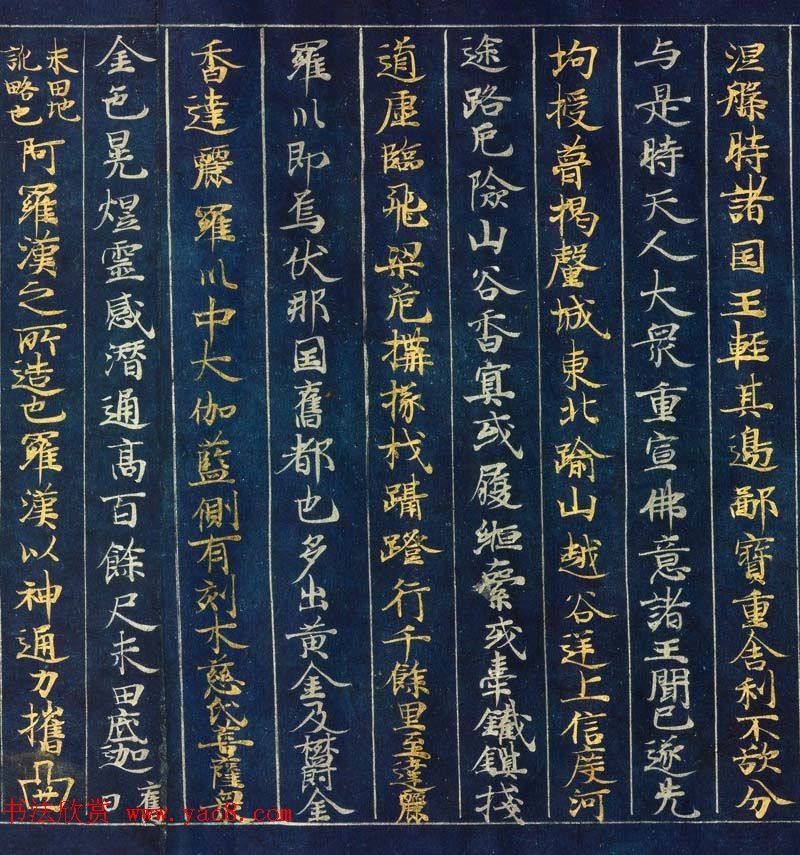 涅槃時諸国王輕其邊鄙寶重舍利不欲分
与是時天人大眾重宣佛意諸王聞已遂先
均授瞢揭釐城東北踰山越谷逆上信度河
途路危險山谷香冥或履縆索或牽鐵鎖棧
道虛臨飛梁危構椽杙躡蹬行千餘里至達麗
羅川即烏伏那国舊都也多出黃金及欝金
香達麗羅川中大伽藍側有刻木慈氏菩薩
金色晃煜靈感潛通高百餘尺末田底迦舊曰
末田地訛略也阿羅漢之所造也羅漢以神通力攜
书法欣赏 www.yac8.com